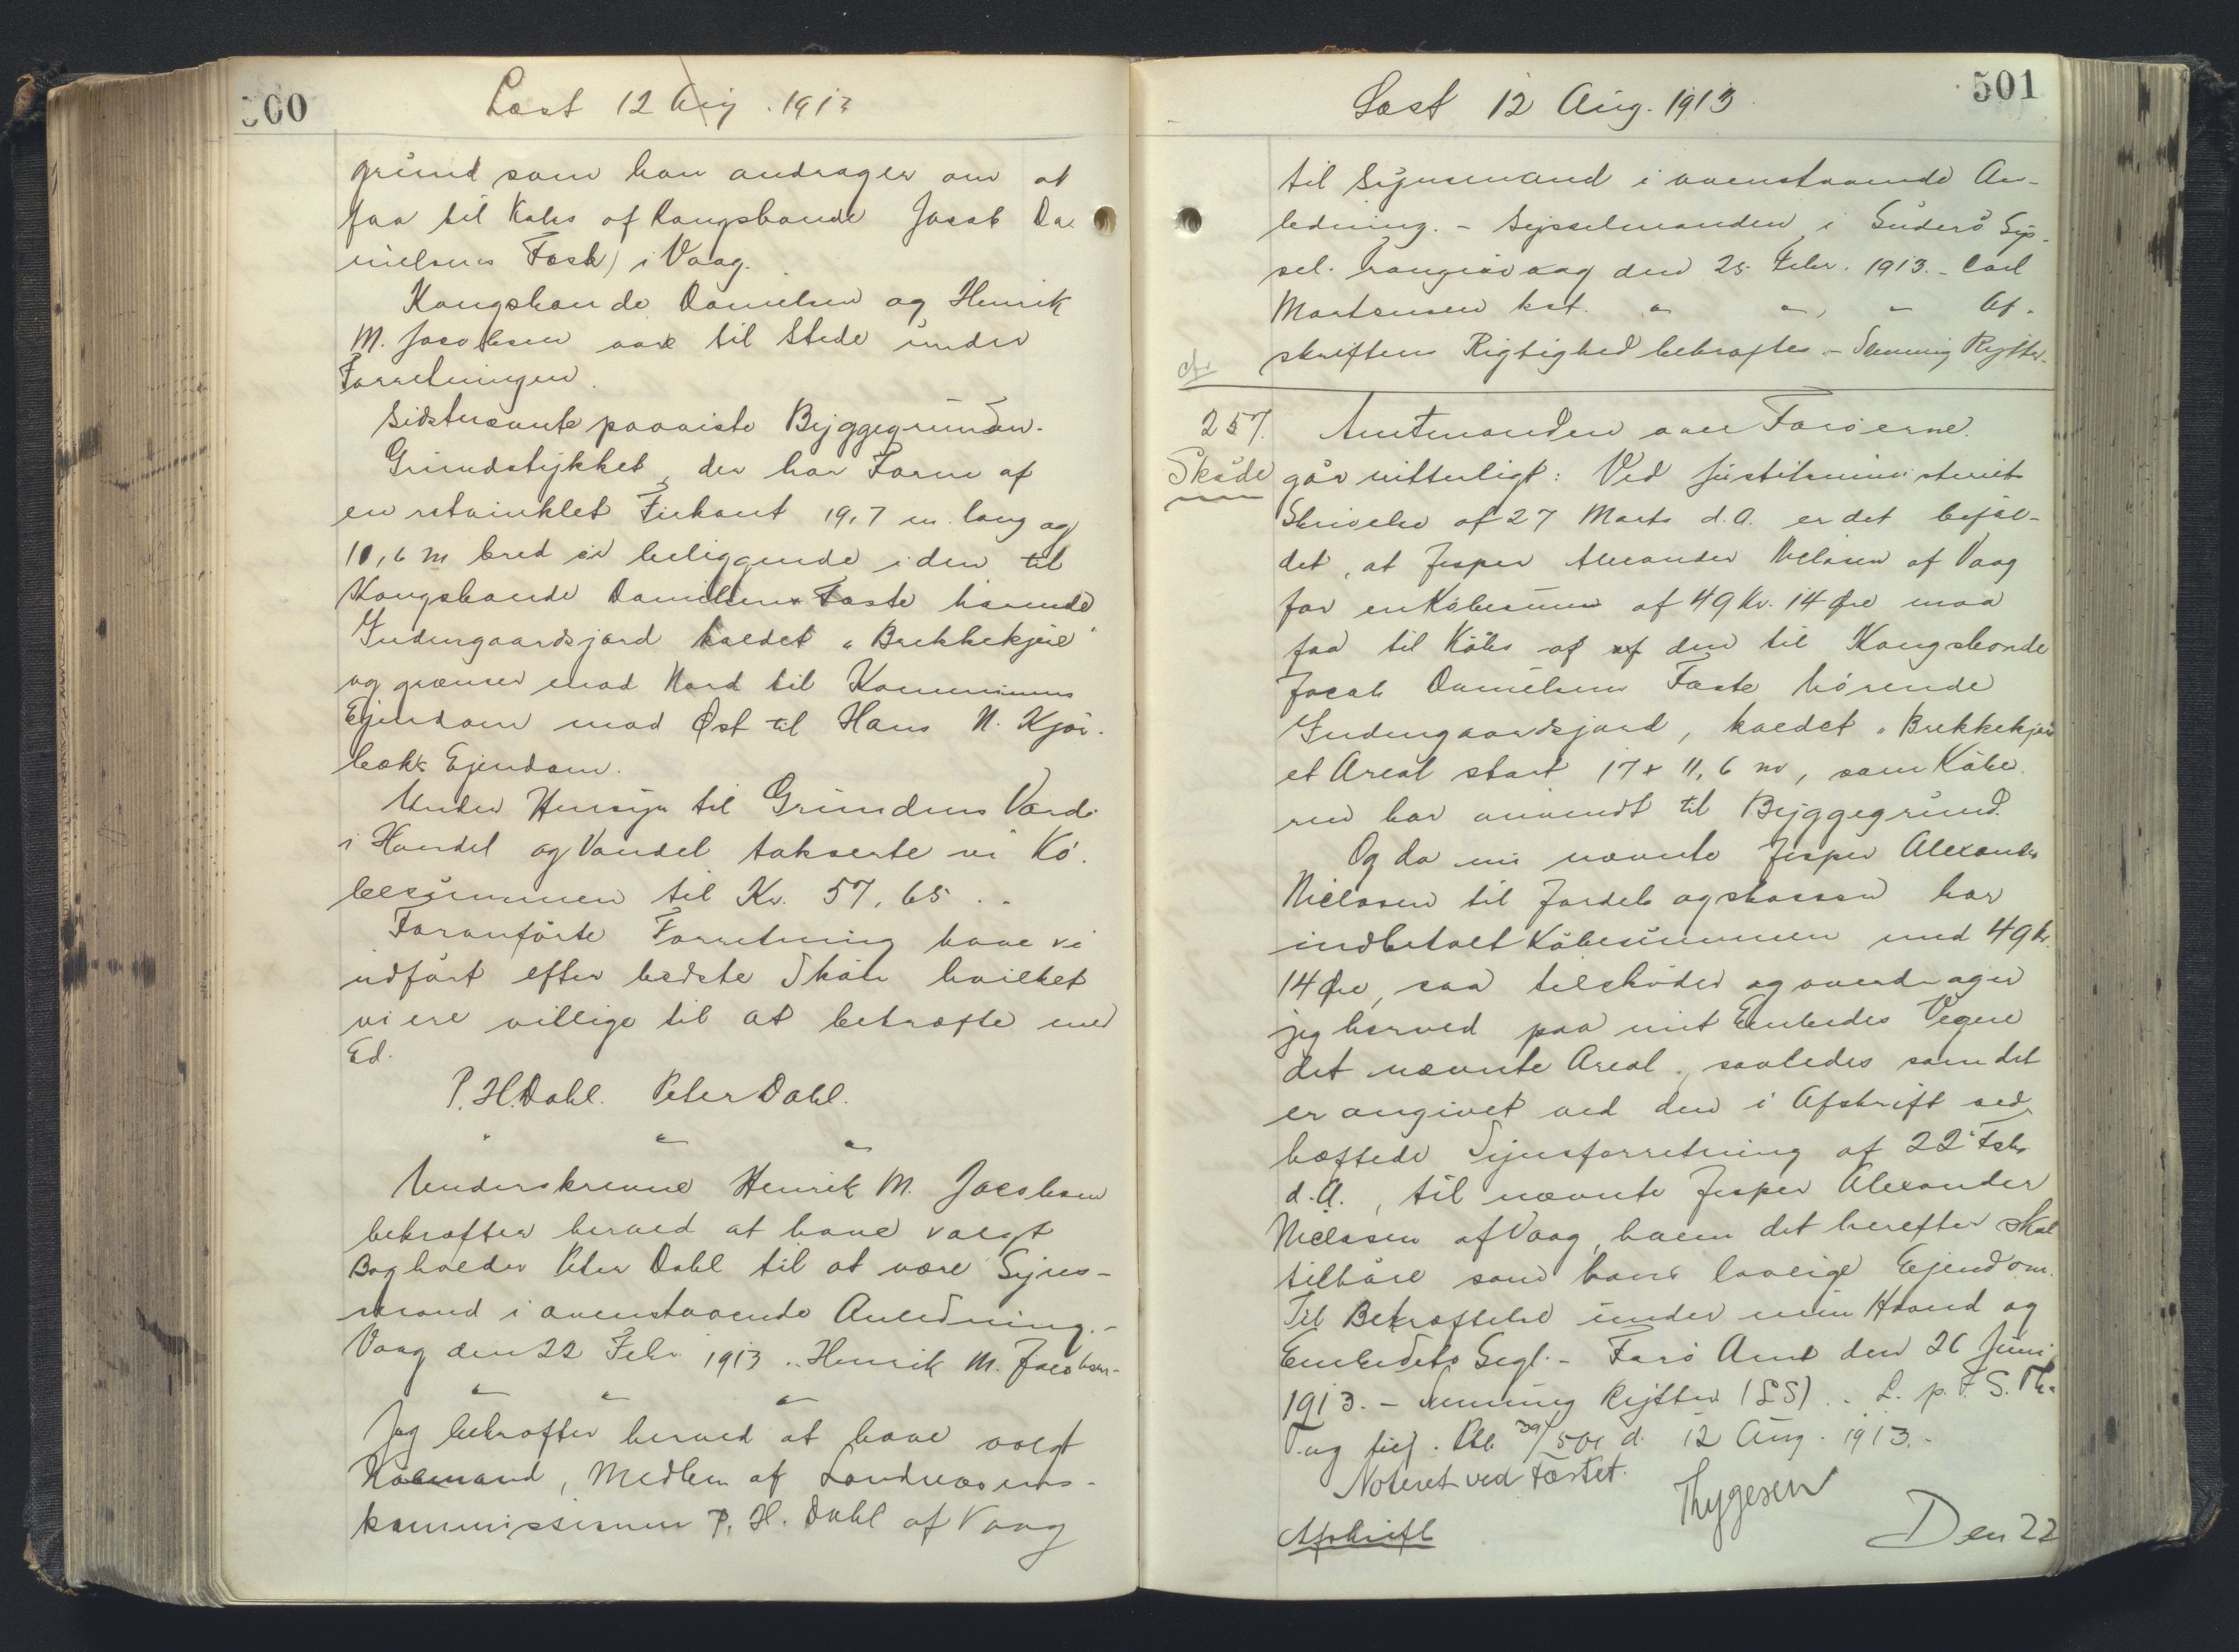 500
Læst 12 Aug. 1913
grund som han andrager om at
faa til Købs af Kongsbonde Jacob Da-
nielsens Fæste) i Vaag.
Kongsbonde Danielsen og Henrik
M. Jacobsen vare til Stede under
Forretningen.
Sidstnævnte paaviste Byggegrunden.
Grundstykket, der har Form af
en retvinklet Firkant 19,7 m. lang og
10,6 m bred er beliggende i den til
Kongsbonde Danielsens Fæste hørende
Indengaardsjord kaldet "Brekkekjeil"
og grænser mod Nord til Kommunens
Ejendom mod Øst til Hans N. Kjør-
bæks Ejendom.
Under Hensyn til Grundens Værdi
i Handel og Vandel takserte vi Kø-
besummen til Kr. 57,65 . -
Foranførte Forretning have vi
udført efter bedste Skøn hvilket
vi ere villige til at bekræfte med
Ed.
P. H. Dahl. Peter Dahl.
" " "
Underskrevne Henrik M. Jacobsen
bekræfter herved at have valgt
Bogholder Peter Dahl til at være Syns-
mand i ovenstaaende Anledning. -
Vaag den 22 Febr. 1913 .. Henrik M. Jacobsen -
" " "
Jeg bekræfter herved at have valgt
Købmand, Medlem af Landvæsens-
kommissionen P. H. Dahl af Vaag
501
Læst 12 Aug. 1913.
til Synsmand i ovenstaaende An-
ledning. - Sysselmanden i Suderø Sys-
sel. Trangisvaag den 25 Febr. 1913. - Carl
Mortensen kst. " " , " Af-
skriftens Rigtighed bekræftes. - Svenning Rytter.
cfr
257. Amtmanden over Færøerne.
Skøde gør vitterligt: Ved Justitsministeriets
Skrivelse af 27 Marts d.A. er det bifal-
det, at Jesper Alexander Nielsen af Vaag
for en Købesum af 49 Kr. 14 Øre maa
faa til Købs af af den til Kongsbonde
Jacob Danielsens Fæste hørende
Indengaardsjord, kaldet "Brekkekjeil
et Areal stort 17 x 11,6 m, som Købe-
ren har anvendt til Byggegrund.
Og da nu nævnte Jesper Alexander
Nielsen til Jordebogskassen har
indbetalt Købesummen med 49 Kr.
14 Øre, saa tilskøder og overdrager
jeg herved paa mit Embedes Vegne
det nævnte Areal, saaledes som det
er angivet ved den i Afskrift ved-
hæftede Synsforretning af 22' Febr.
d.A., til nævnte Jesper Alexander
Nielsen af Vaag, hvem det herefter skal
tilhøre som hans lovlige Ejendom.
Til Bekræftelse under min Haand og
Embedets Segl. - Færø Amt den 26 Juni
1913. - Svenning Rytter (LS) .. L. p. F. S. Th-
T. og 501 d. 12 Aug. 1913. -
Noteret ved Fæstet.
Thygesen
Afskrift
Den 22